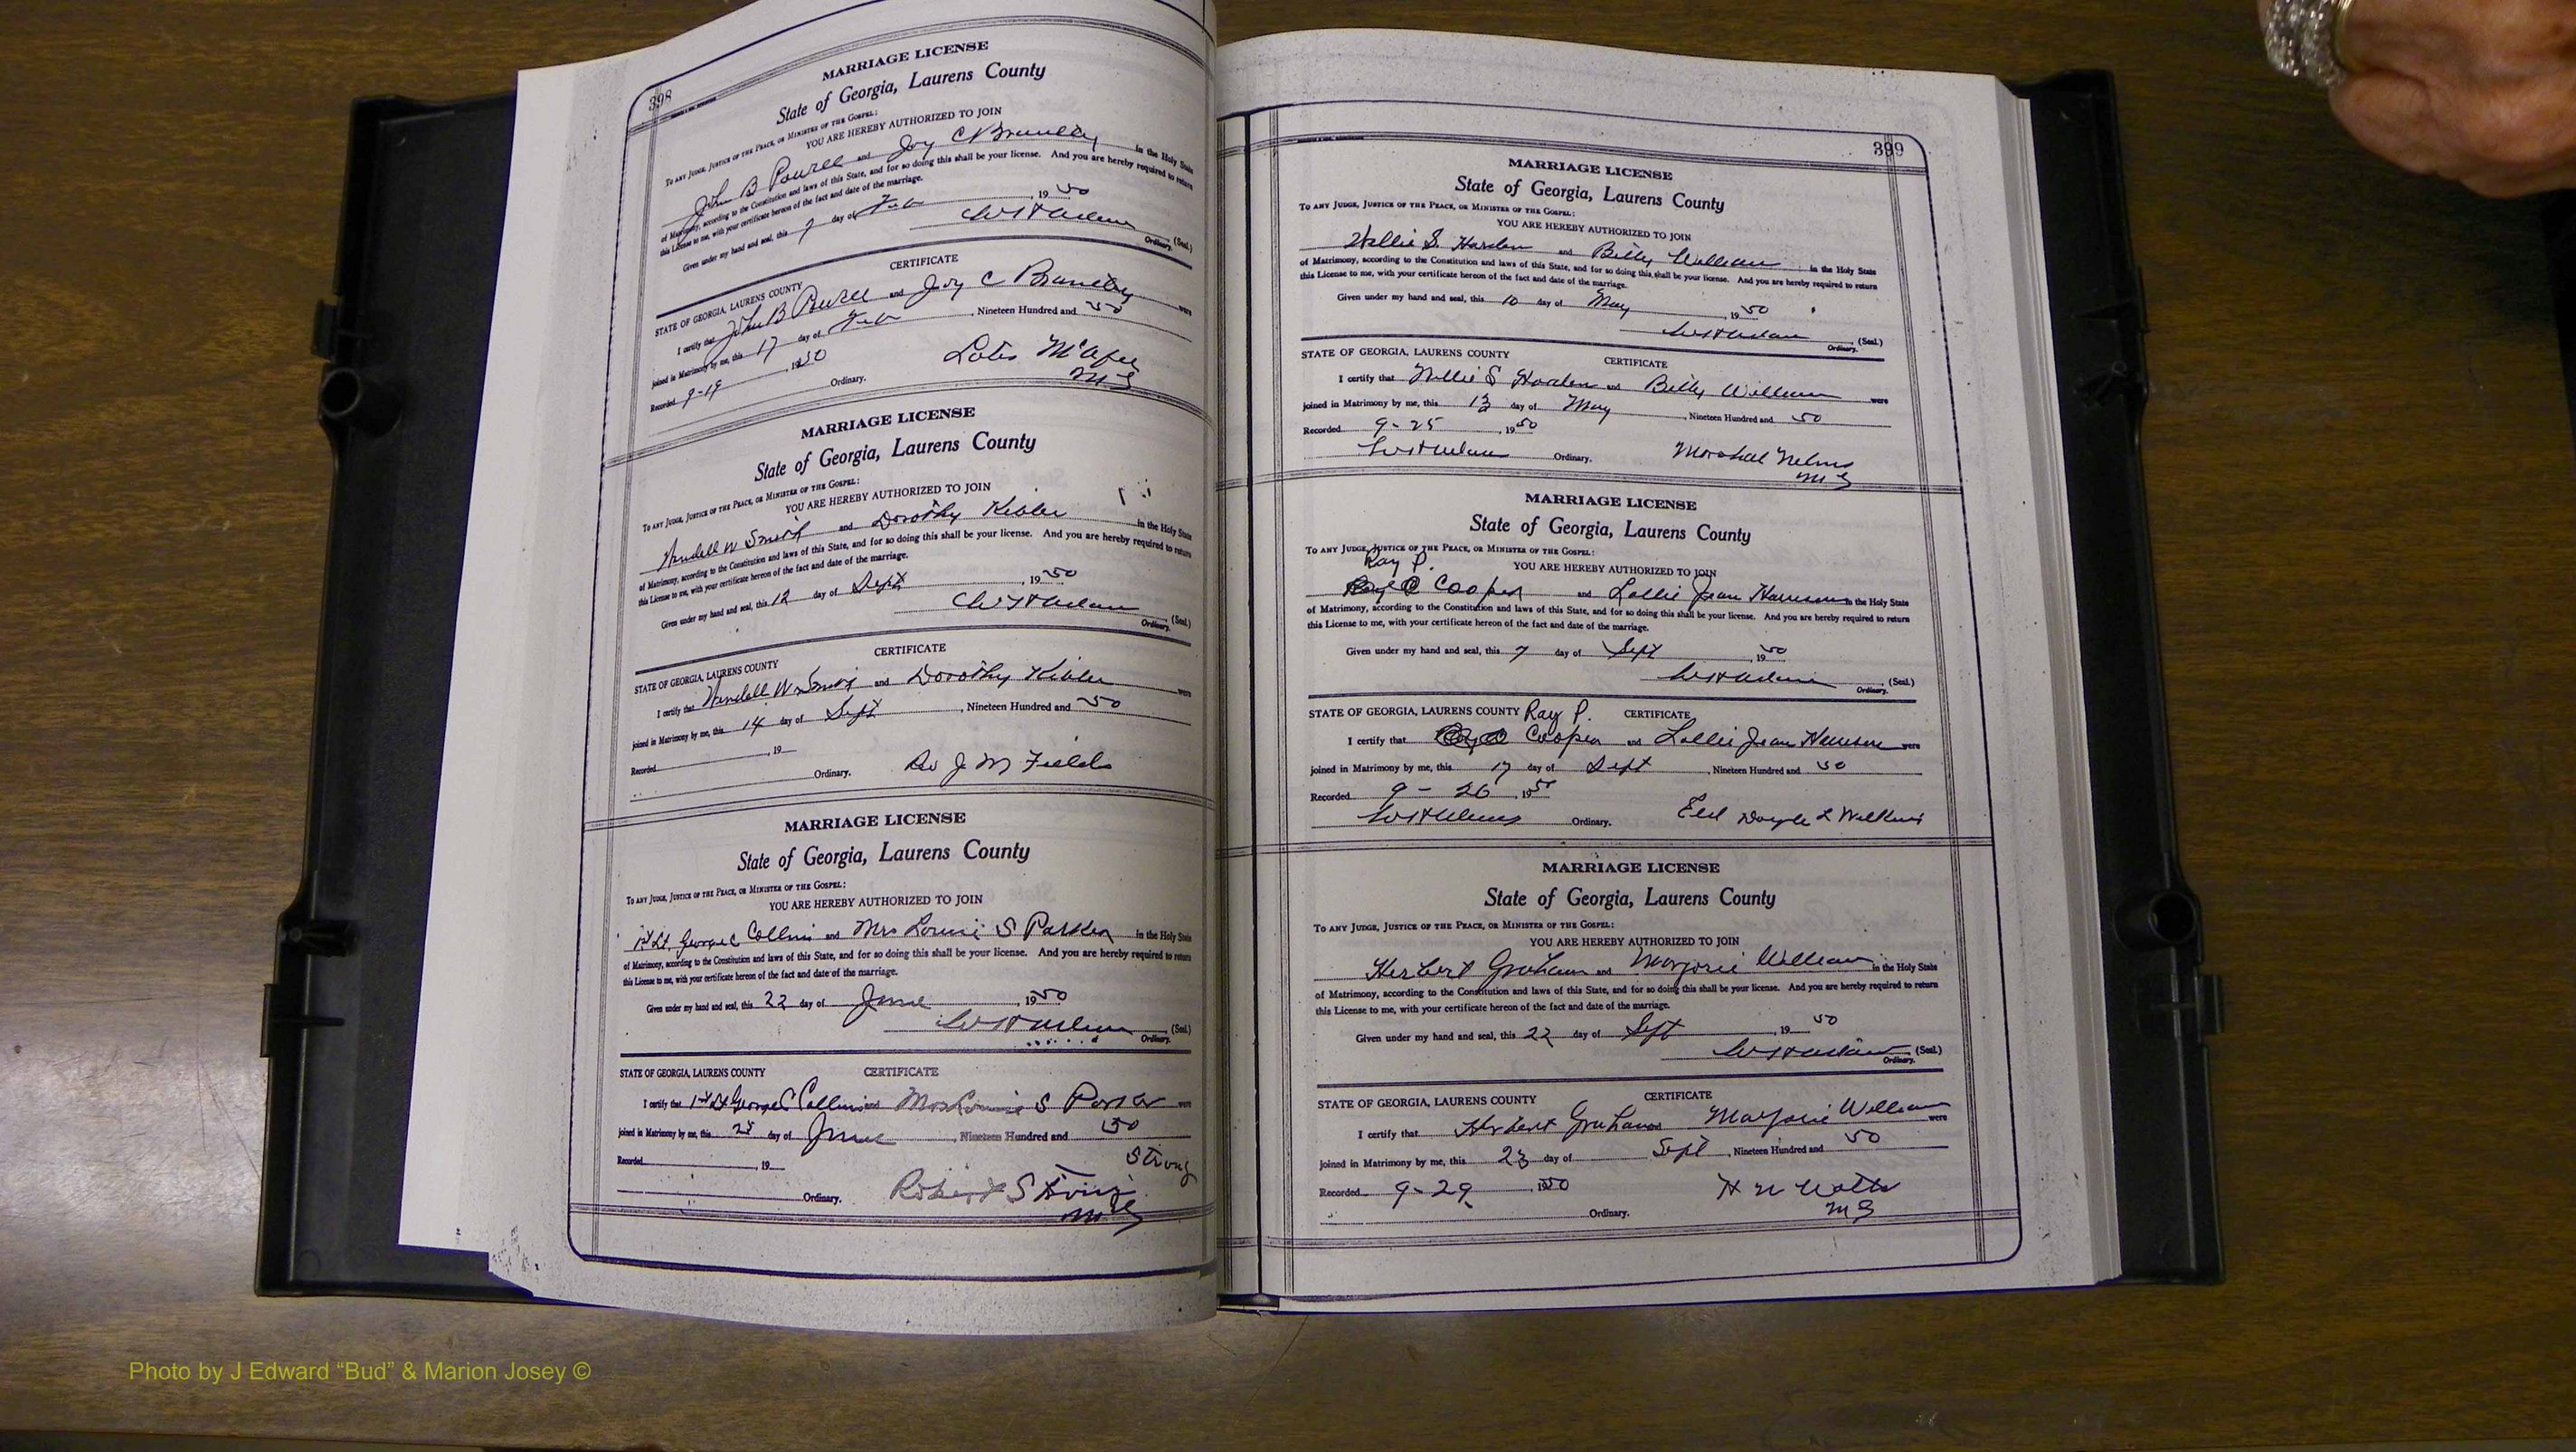 398
MARRIAGE LICENSE
State of Georgia, Laurens County
To any Judge, Justice of the Peace, or Minister of the Gospel:
YOU ARE HEREBY AUTHORIZED TO JOIN
John B Powell and Joy C Brantley in the Holy State
of Matrimony, according to the Constitution and laws of this State, and for so doing this shall be your license. And you are hereby required to return
this License to me, with your certificate hereon of the fact and date of the marriage.
Given under my hand and seal, this 7 day of Feb, 1950
(Seal.)
Ordinary.
CERTIFICATE
STATE OF GEORGIA, LAURENS COUNTY
I certify that John B Powell and Joy C Brantley were
joined in Matrimony by me, this 17 day of Feb, Nineteen Hundred and 50
Recorded 9-19, 1950
Ordinary. McAfee
MG
MARRIAGE LICENSE
State of Georgia, Laurens County
To any Judge, Justice of the Peace, or Minister of the Gospel:
YOU ARE HEREBY AUTHORIZED TO JOIN
Wendell W Smith and Dorothy Kibler in the Holy State
of Matrimony, according to the Constitution and laws of this State, and for so doing this shall be your license. And you are hereby required to return
this License to me, with your certificate hereon of the fact and date of the marriage.
Given under my hand and seal, this 12 day of Sept, 1950
(Seal.)
Ordinary.
CERTIFICATE
STATE OF GEORGIA, LAURENS COUNTY
I certify that Wendell W Smith and Dorothy Kibler were
joined in Matrimony by me, this 14 day of Sept, Nineteen Hundred and 50
Recorded , 19
Ordinary. J M Fields
MARRIAGE LICENSE
State of Georgia, Laurens County
To any Judge, Justice of the Peace, or Minister of the Gospel:
YOU ARE HEREBY AUTHORIZED TO JOIN
1st Lt. George C Collins and Mrs Lonnie S Parker in the Holy State
of Matrimony, according to the Constitution and laws of this State, and for so doing this shall be your license. And you are hereby required to return
this License to me, with your certificate hereon of the fact and date of the marriage.
Given under my hand and seal, this 22 day of June, 1950
(Seal.)
Ordinary.
STATE OF GEORGIA, LAURENS COUNTY CERTIFICATE
I certify that 1st Lt George C Collins and Mrs Lonnie S Parker were
joined in Matrimony by me, this day of June, Nineteen Hundred and 50
Strong
Recorded , 19
Ordinary. Robert Strong
MG
399
MARRIAGE LICENSE
State of Georgia, Laurens County
To any Judge, Justice of the Peace, or Minister of the Gospel:
YOU ARE HEREBY AUTHORIZED TO JOIN
S. Harden and Billy William in the Holy State
of Matrimony, according to the Constitution and laws of this State, and for so doing this shall be your license. And you are hereby required to return
this License to me, with your certificate hereon of the fact and date of the marriage.
Given under my hand and seal, this 10 day of May, 1950
(Seal.)
Ordinary.
STATE OF GEORGIA, LAURENS COUNTY CERTIFICATE
I certify that S Harden and Billy William were
joined in Matrimony by me, this 13 day of May, Nineteen Hundred and 50
Recorded 9-25, 1950
Ordinary. Marshall Nelms
MG
MARRIAGE LICENSE
State of Georgia, Laurens County
To any Judge, Justice of the Peace, or Minister of the Gospel:
Ray P. YOU ARE HEREBY AUTHORIZED TO JOIN
Cooper and Lollie Jean Harrison in the Holy State
of Matrimony, according to the Constitution and laws of this State, and for so doing this shall be your license. And you are hereby required to return
this License to me, with your certificate hereon of the fact and date of the marriage.
Given under my hand and seal, this 7 day of Sept, 1950
(Seal.)
Ordinary.
STATE OF GEORGIA, LAURENS COUNTY Ray P. CERTIFICATE
I certify that Cooper and Lollie Jean Harrison were
joined in Matrimony by me, this 17 day of Sept, Nineteen Hundred and 50
Recorded 9-26, 1950
Ordinary. Doyle
MARRIAGE LICENSE
State of Georgia, Laurens County
To any Judge, Justice of the Peace, or Minister of the Gospel:
YOU ARE HEREBY AUTHORIZED TO JOIN
Herbert Graham and Marjorie William in the Holy State
of Matrimony, according to the Constitution and laws of this State, and for so doing this shall be your license. And you are hereby required to return
this License to me, with your certificate hereon of the fact and date of the marriage.
Given under my hand and seal, this 22 day of Sept, 1950
(Seal.)
Ordinary.
STATE OF GEORGIA, LAURENS COUNTY CERTIFICATE
I certify that Herbert Graham Marjorie William were
joined in Matrimony by me, this 23 day of Sept, Nineteen Hundred and 50
Recorded 9-29, 1950
Ordinary.
MG
Photo by J Edward “Bud” & Marion Josey ©